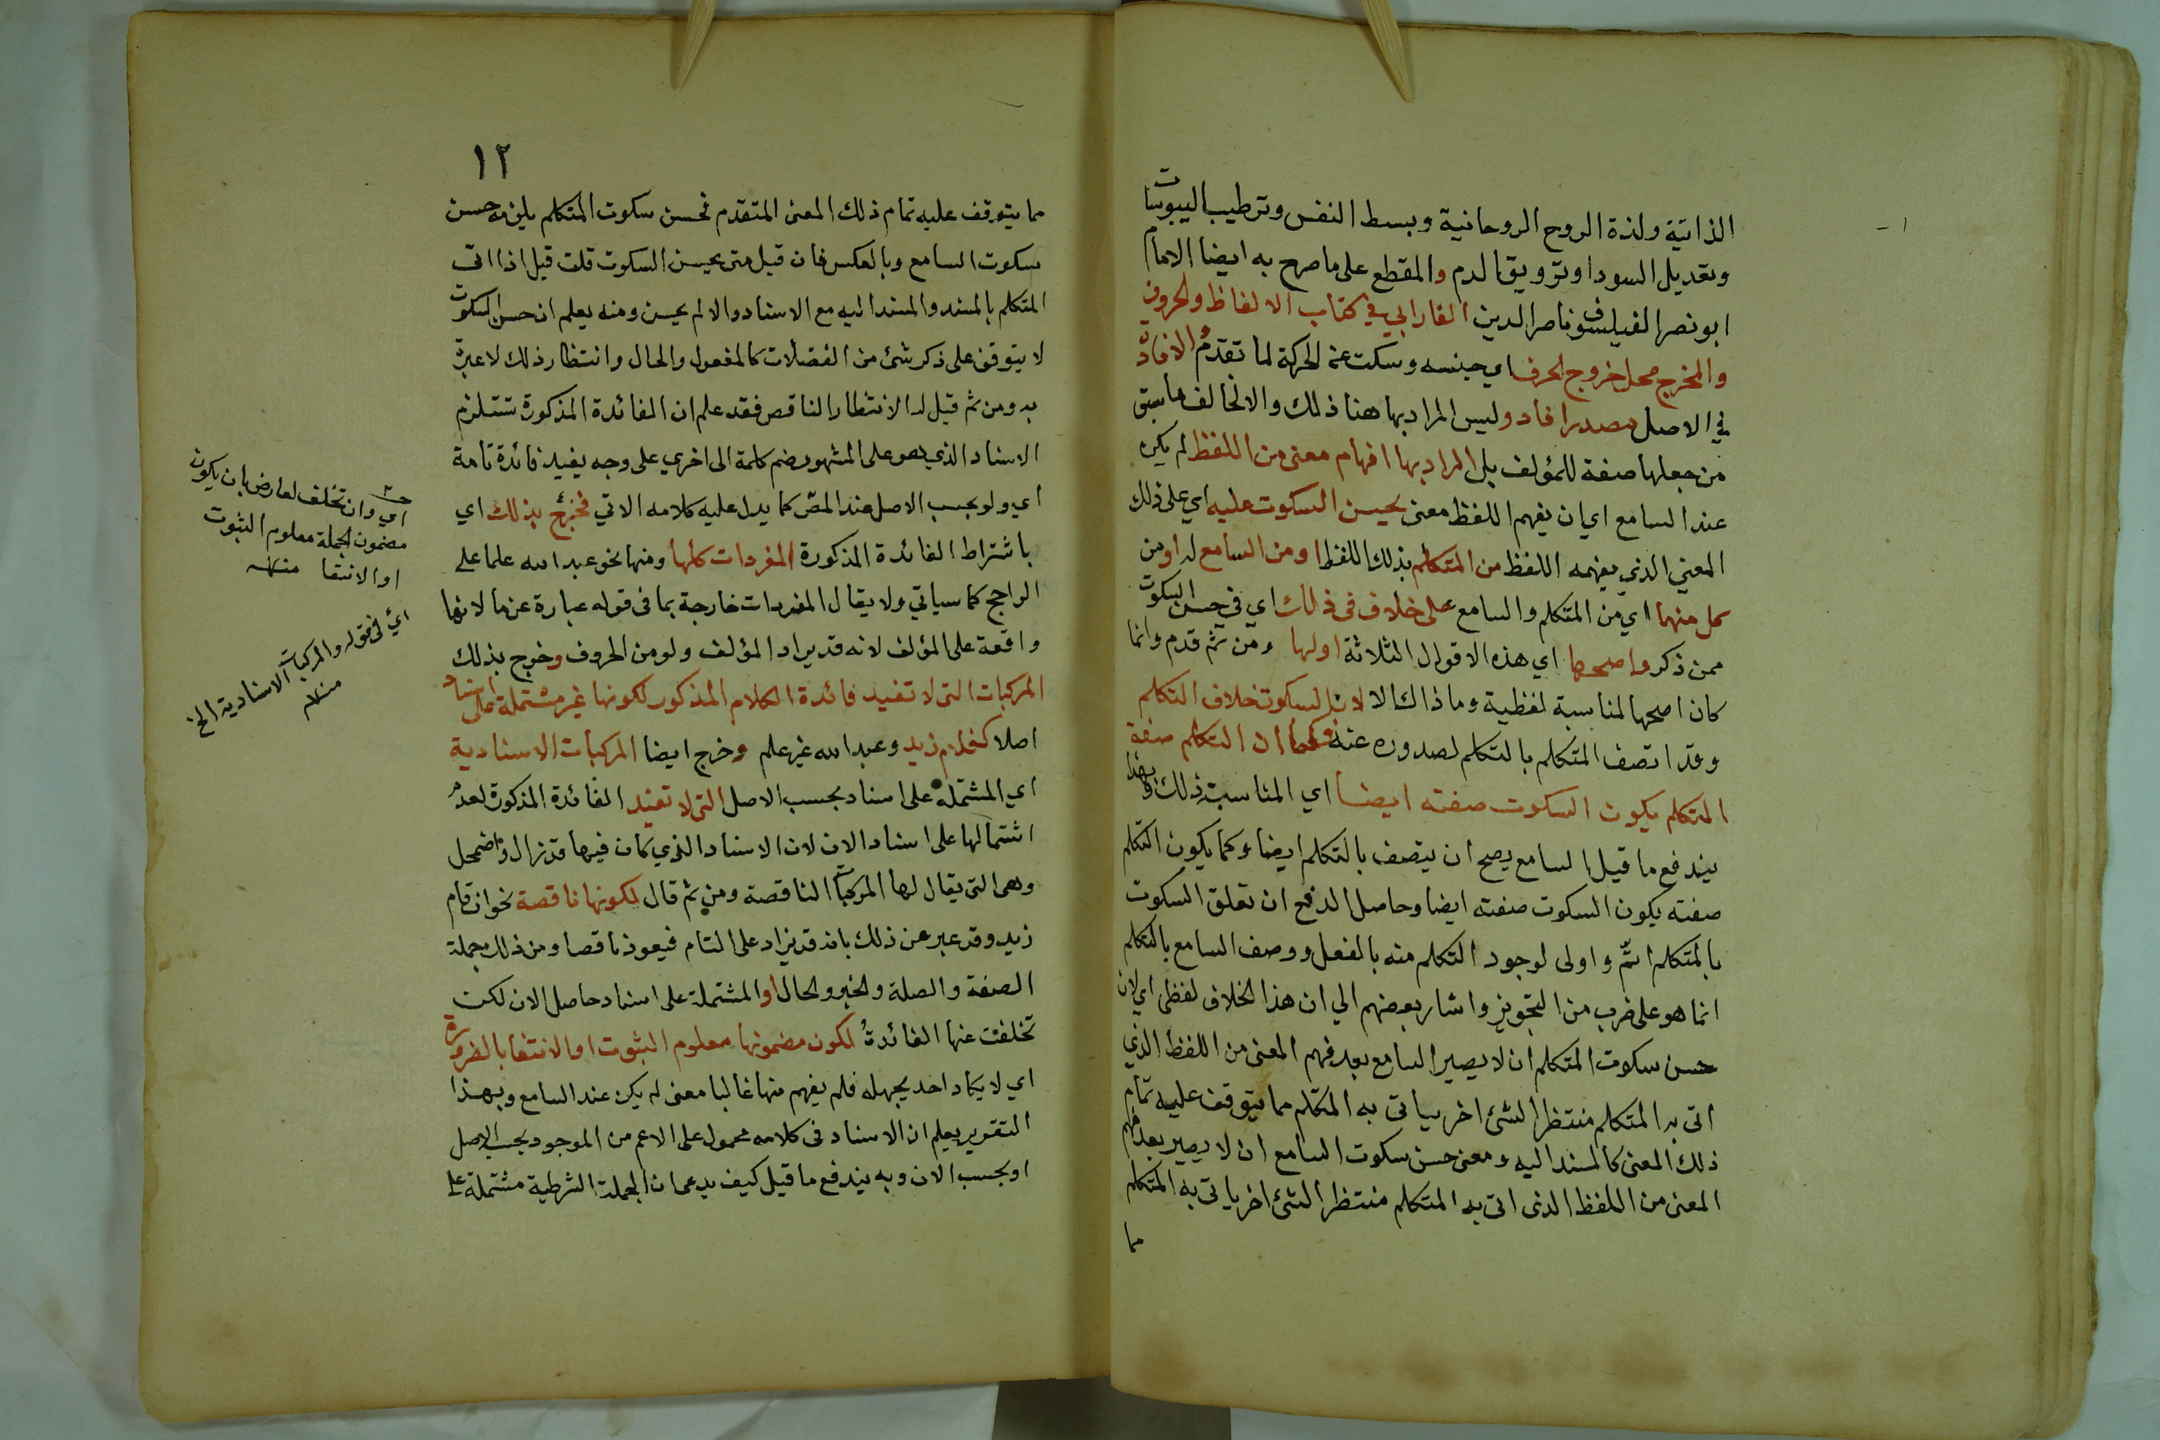 الذاتية ولذة الروح الروحانية وبسط النفس وترطيب اليبوسات
وتعديل السودا وترويق الدم والمقطع على ما صرح به ايضا الامام
ابو نصر الفيلسوف ناصر الدين الفارابي في كتاب الالفاظ والحروف
والمخرج محل خروج الحرف اي جنسه وسكت عن الحركة لما تقدم والافادة
في الاصل مصدر افاد وليس المراد بها هنا ذلك والا لخالف ما سبق
من جعلها صفة للمؤلف بل المراد بها افهام معنى من اللفظ لم يكن
عند السامع اي ان يفهم اللفظ معنى يحسن السكوت عليه اي على ذلك
المعنى الذي يفهمه اللفظ من المتكلم بذلك اللفظ او من السامع له او من
كل منهما اي من المتكلم والسامع على خلاف في ذلك اي في حسن السكوت
ممن ذكر واصحها اي هذه الاقوال الثلاثة اولها ومن ثم قدم وانما
كان اصحها لمناسبة لفظية وما ذاك الا لان السكوت خلاف التكلم
وقد اتصف المتكلم بالتكلم لصدوره عنه وكما ان التكلم صفة
المتكلم يكون السكوت صفته ايضا اي المناسب ذلك وبهذا
يندفع ما قيل السامع يصح ان يتصف بالتكلم ايضا وكما يكون التكلم
صفته يكون السكوت صفته ايضا وحاصل الدفع ان تعلق السكوت
بالمتكلم اتم واولى لوجود التكلم منه بالفعل ووصف السامع بالتكلم
انما هو على ضرب من التجويز واشار بعضهم الي ان هذا الخلاف لفظي اي لان
حسن سكوت المتكلم ان لا يصير السامع بعد فهم المعنى من اللفظ الذي
اتى به المتكلم منتظرا لشئ اخر ياتى به المتكلم مما يتوقف عليه تمام
ذلك المعنى كالمسند اليه ومعنى حسن سكوت السامع ان لا يصير بعد فهم
المعنى من اللفظ الذى اتى به المتكلم منتظرا لشئ اخر ياتى به المتكلم
مما
١٢
مما يتوقف عليه تمام ذلك المعنى المتقدم فحسن سكوت المتكلم يلزمه حسن
سكوت السامع وبالعكس فان قيل متى يحسن السكوت قلت قيل اذا اتى
المتكلم بالمسند والمسند اليه مع الاسناد والا لم يحسن ومنه يعلم ان حسن السكوت
لا يتوقف على ذكر شئ من الفضلات كالمفعول والحال وانتظار ذلك لا عبرة
به ومن ثم قيل له الانتظار الناقص فقد علم ان الفائدة المذكورة تستلزم
الاسناد الذي هو على المشهور ضم كلمة الى اخرى على وجه يفيد فائدة تامة
اي ولو بحسب الاصل عند المص كما يدل عليه كلامه الاتي فخرج بذلك اي
باشتراط الفائدة المذكورة المفردات كلها ومنها نحو عبد الله علما على
الراجح كما سياتي ولا يقال المفردات خارجة بما فى قوله عبارة عن ما لانها
واقعة على المؤلف لانه قد يراد المؤلف ولو من الحروف وخرج بذلك
المركبات التى لا تفيد فائدة الكلام المذكور لكونها غير مشتملة على اسناد
اصلا كغلام زيد وعبد الله غير علم وخرج ايضا المركبات الاسنادية
اي المشتملة على اسناد بحسب الاصل التى لا تفيد الفائدة المذكورة لعدم
اشتمالها على اسناد الان لان الاسناد الذي كان فيها قد زال واضمحل
وهى التى يقال لها المركبات الناقصة ومن ثم قال لكونها ناقصة نحو ان قام
زيد وقد عبر عن ذلك بانه قد يزاد على التام فيعود ناقصا ومن ذلك جملة
الصفة والصلة والخبر والحال او المشتملة على اسناد حاصل الان لكن
تخلفت عنها الفائدة لكون مضمونها معلوم الثبوت او الانتفا بالضرورة
اي لا يكاد احد يجهله فلم يفهم منها غالبا معنى لم يكن عند السامع وبهذا
التقرير يعلم ان الاسناد فى كلامه محمول على الاعم من الموجود بحسب الاصل
او بحسب الان وبه يندفع ما قيل كيف يدعى ان الجملة الشرطية مشتملة على
اي وان تخلف لعارض بان يكون
مضمون الجملة معلوم الثبوت
او الانتفا منه
اي في قوله والمركبات الاسنادية الخ
منه